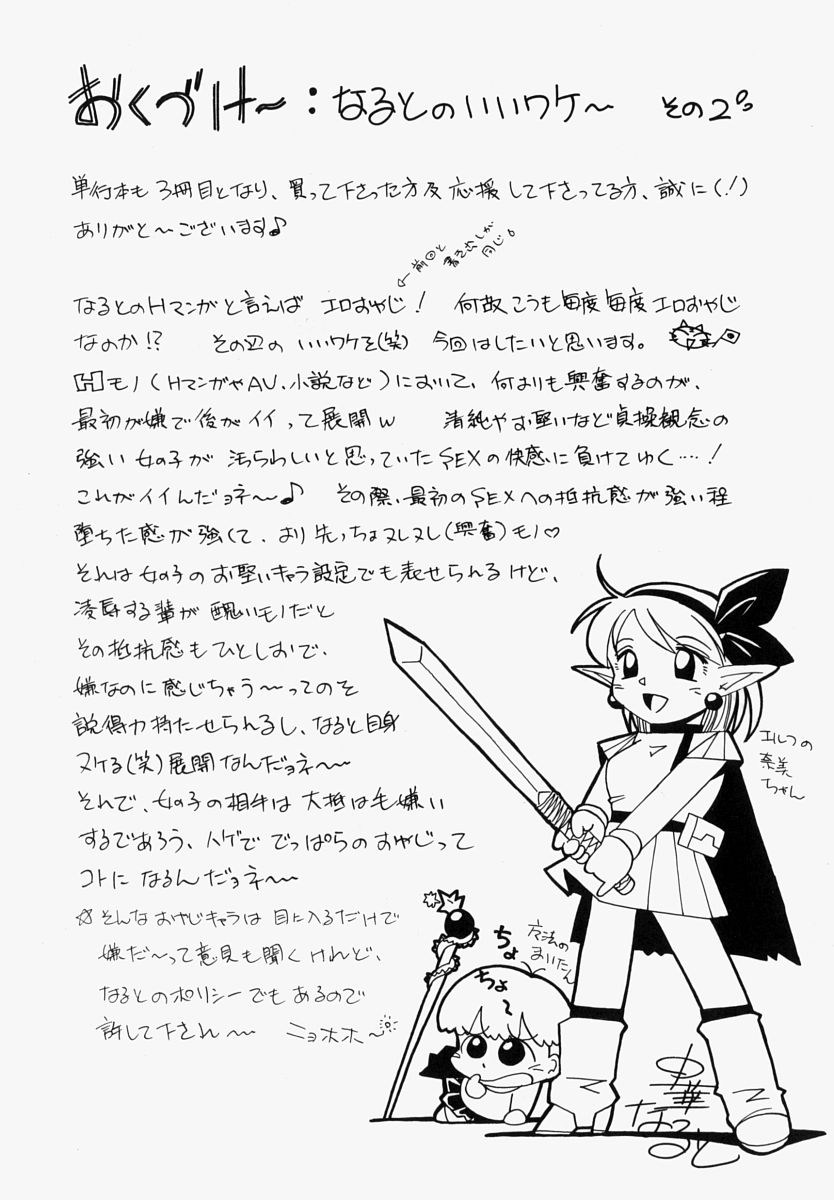 おくづけ〜：なるとのいいワケ〜 その2。
単行本も3冊目となり、買って下さった方及応援して下さってる方、誠に(!)
ありがと〜ございます♪
←前回と
書き出しが
同じ。
なるとのHマンガと言えば エロおやじ！ 何故こうも毎度毎度エロおやじ
なのか!? その辺の いいワケを(笑) 今回はしたいと思います。
Hモノ(HマンガやAV、小説など)において、何よりも興奮するのが、
最初が嫌で後がイイって展開w 清純やお堅いなど貞操観念の
強い女の子が 汚らわしいと思っていたSEXの快感に負けてゆく…！
これがイイんだョネ〜♪ その際、最初のSEXへの抵抗感が強い程
堕ちた感が強くて、より先っちょヌレヌレ(興奮)モノ♡
それは女の子のお堅いキャラ設定でも表せられるけど、
凌辱する輩が醜いモノだと
その抵抗感もひとしおで、
嫌なのに感じちゃう〜ってのを
説得力持たせられるし、なると自身
ヌケる(笑)展開なんだョネ〜
それで、女の子の相手は大抵は毛嫌い
するであろう、ハゲで でっぱらのおやじって
コトに なるんだョネ〜
☆そんなおやじキャラは 目に入るだけで
嫌だ〜って意見も聞くけれど、
なるとのポリシーでもあるので
許して下され〜 ニョホホ〜
エルフの
奈美
ちゃん
ちょ
ちょ〜
まいたん
中華
なると